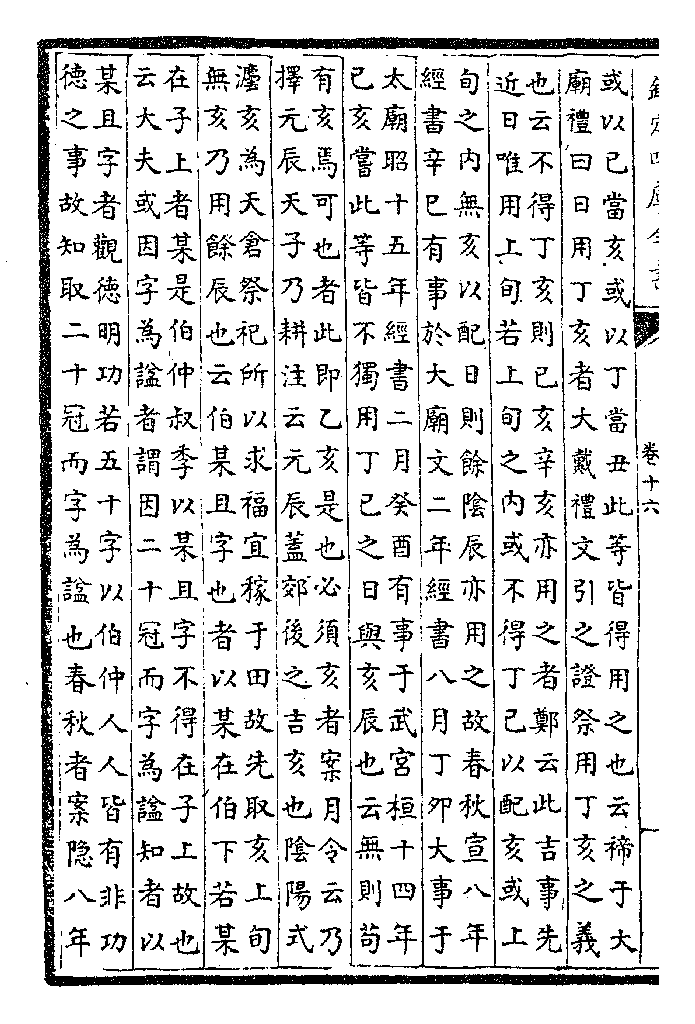 欽定四庫全書
卷十六
或以已當亥或以丁當丑此等皆得用之也云禘于大
廟禮曰日用丁亥者大戴禮文引之證祭用丁亥之義
也云不得丁亥則已亥辛亥亦用之者鄭云此吉事先
近日唯用上旬若上旬之内或不得丁已以配亥或上
旬之内無亥以配日則餘陰辰亦用之故春秋宣八年
經書辛巳有事於大廟文二年經書八月丁夘大事于
太廟昭十五年經書二月癸酉有事于武宮桓十四年
已亥嘗此等皆不獨用丁已之日與亥辰也云無則苟
有亥焉可也者此即乙亥是也必須亥者案月令云乃
擇元辰天子乃耕注云元辰蓋郊後之吉亥也陰陽式
灋亥為天倉祭祀所以求福宜稼于田故先取亥上旬
無亥乃用餘辰也云伯某且字也者以某在伯下若某
在子上者某是伯仲叔季以某且字不得在子上故也
云大夫或因字為諡者謂因二十冠而字為諡知者以
某且字者觀德明功若五十字以伯仲人人皆有非功
德之事故知取二十冠而字為諡也春秋者案隐八年